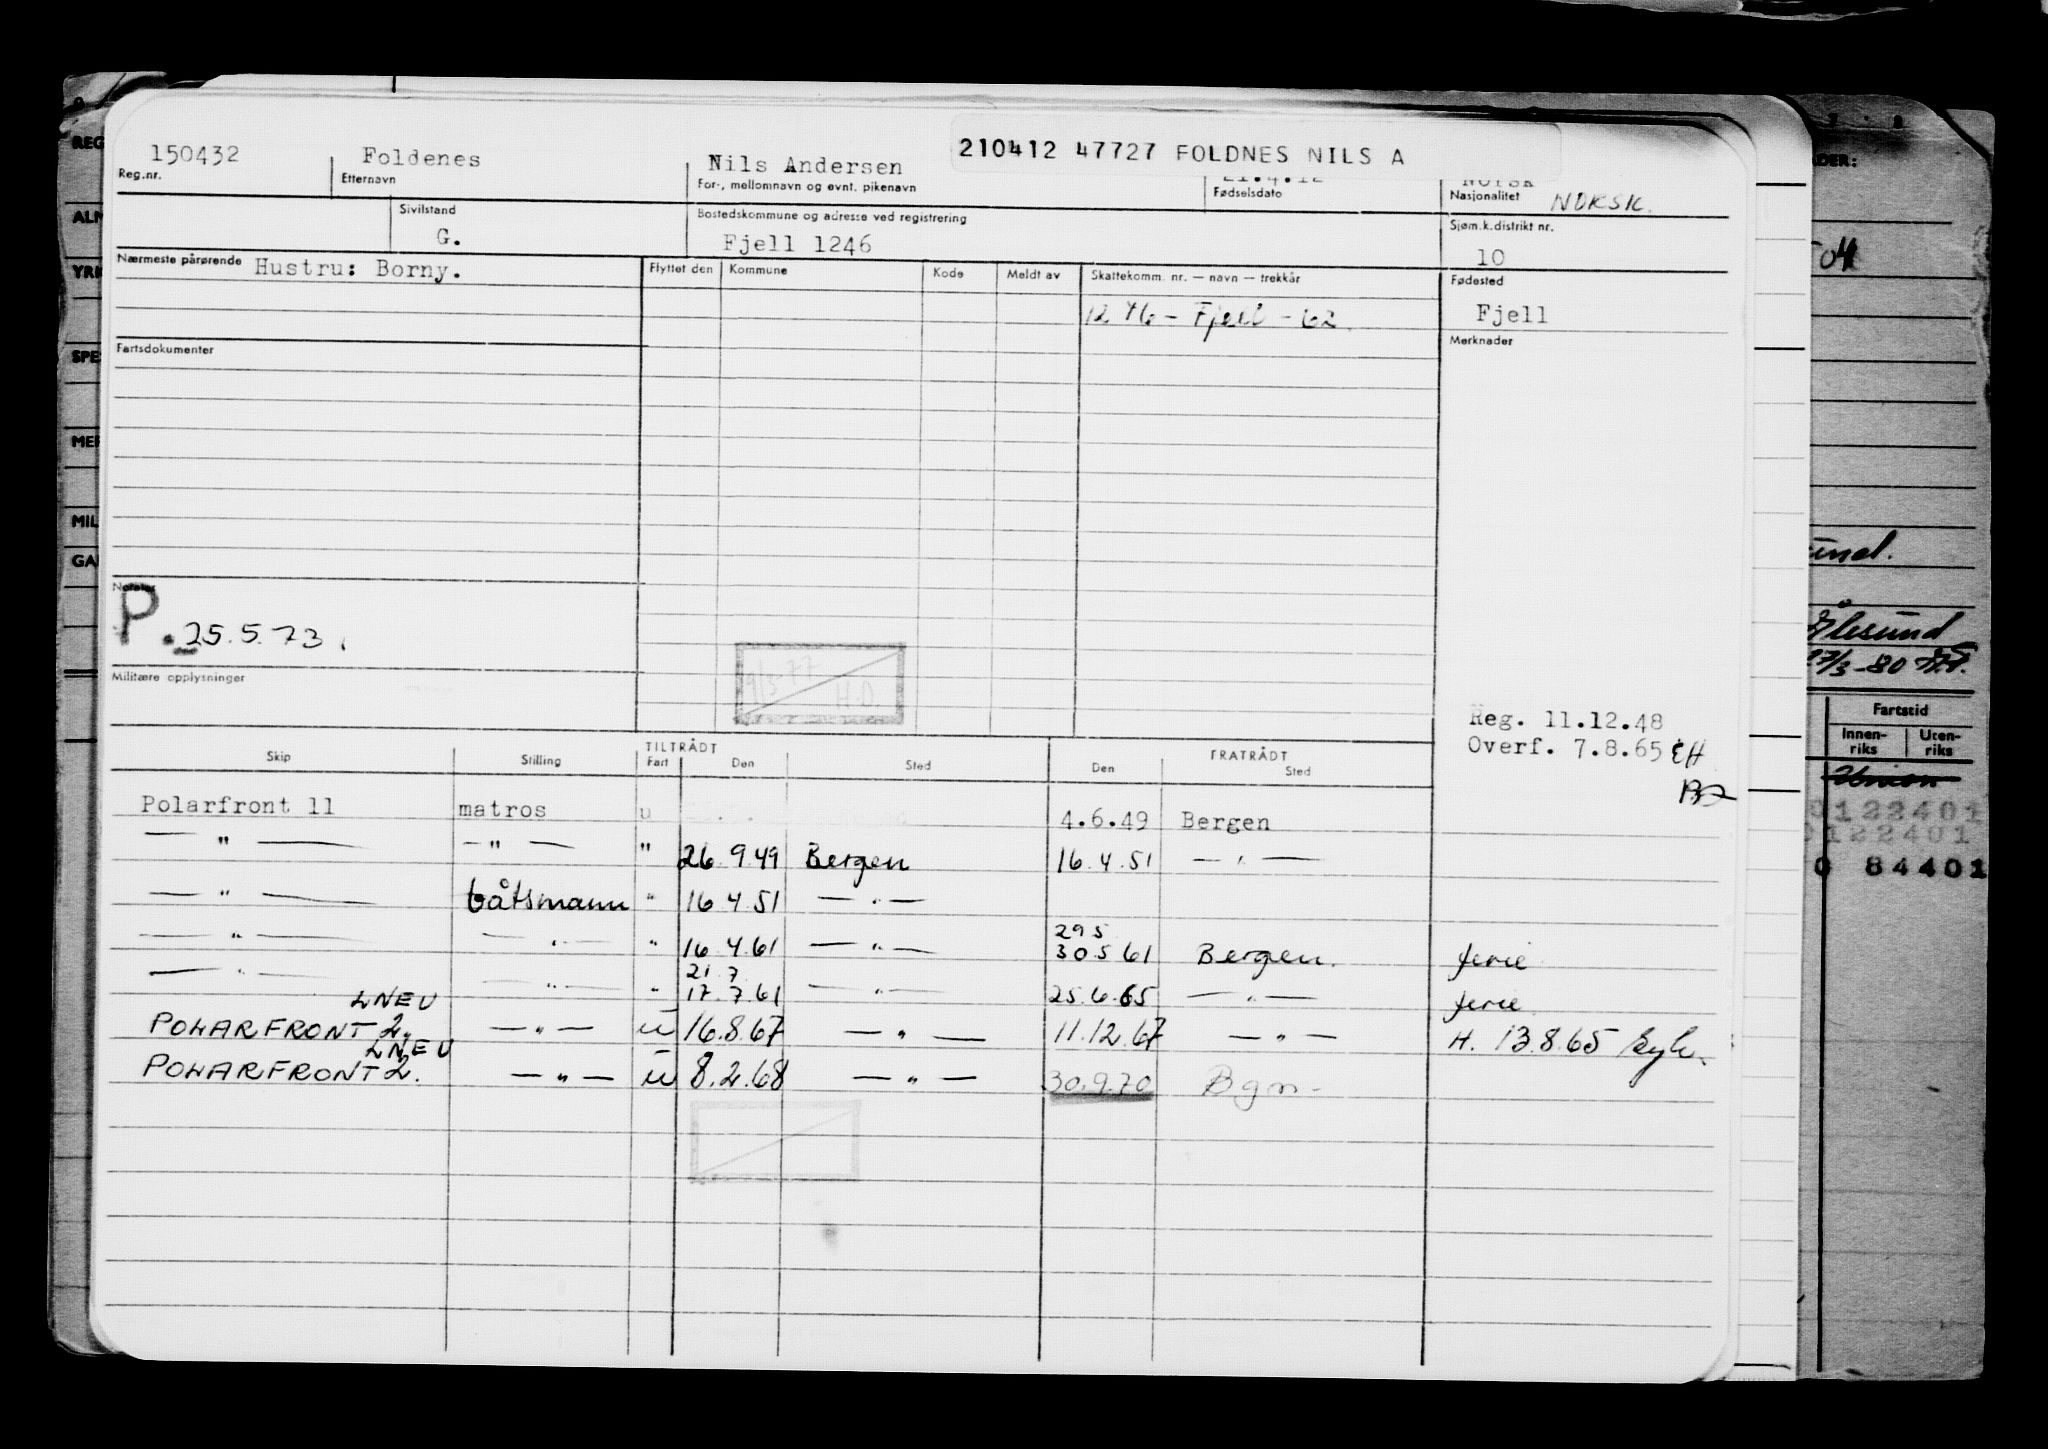 210412 47727 FOLDNES NILS A
150432 Foldenes Nils Andersen 21.4.12 Norsk
Reg.nr. Etternavn For-, mellomnavn og evnt. pikenavn Fødselsdato Nasjonalitet NORSK.
Sivilstand Bostedskommune og adresse ved registrering Sjøm.k.distrikt nr.
G. Fjell 1246 10
Nærmeste pårørende Hustru: Borny. Flyttet den Kommune Kode Meldt av Skattekomm. nr. — navn — trekkår Fødested
1246 - Fjell - 62. Fjell
Fartsdokumenter Merknader
Notater
P. 25.5.73.
9/5 77
H.D.
Militære opplysninger
Reg. 11.12.48
Overf. 7.8.65 EH
TILTRÅDT FRATRÅDT
Skip Stilling Fart Den Sted Den Sted
Polarfront 11 matros u 4.6.49 Bergen
— " — — " — " 26.9.49 Bergen 16.4.51 — " —
— " — båtsmann " 16.4.51 — " —
29 5
— " — — " — " 16.4.61 — " — 30.5 61 Bergen. ferie
21. 7
— " — — " — " 17.7.61 — " — 25.6.65 — " — ferie
LNEU
POLARFRONT 2. — " — U 16.8.67 — " — 11.12.67 — " — H. 13.8.65
LNEU
POLARFRONT 2. — " — U 8.2.68 — " — 30.9.70 Bgn-
REG
ALM
YRK
SPE
MER
MIL
GA
DER:
04
und.
Ålesund
27/3-80
Fartstid
Innen-
riks
Uten-
riks
0122401
0122401
0 84401